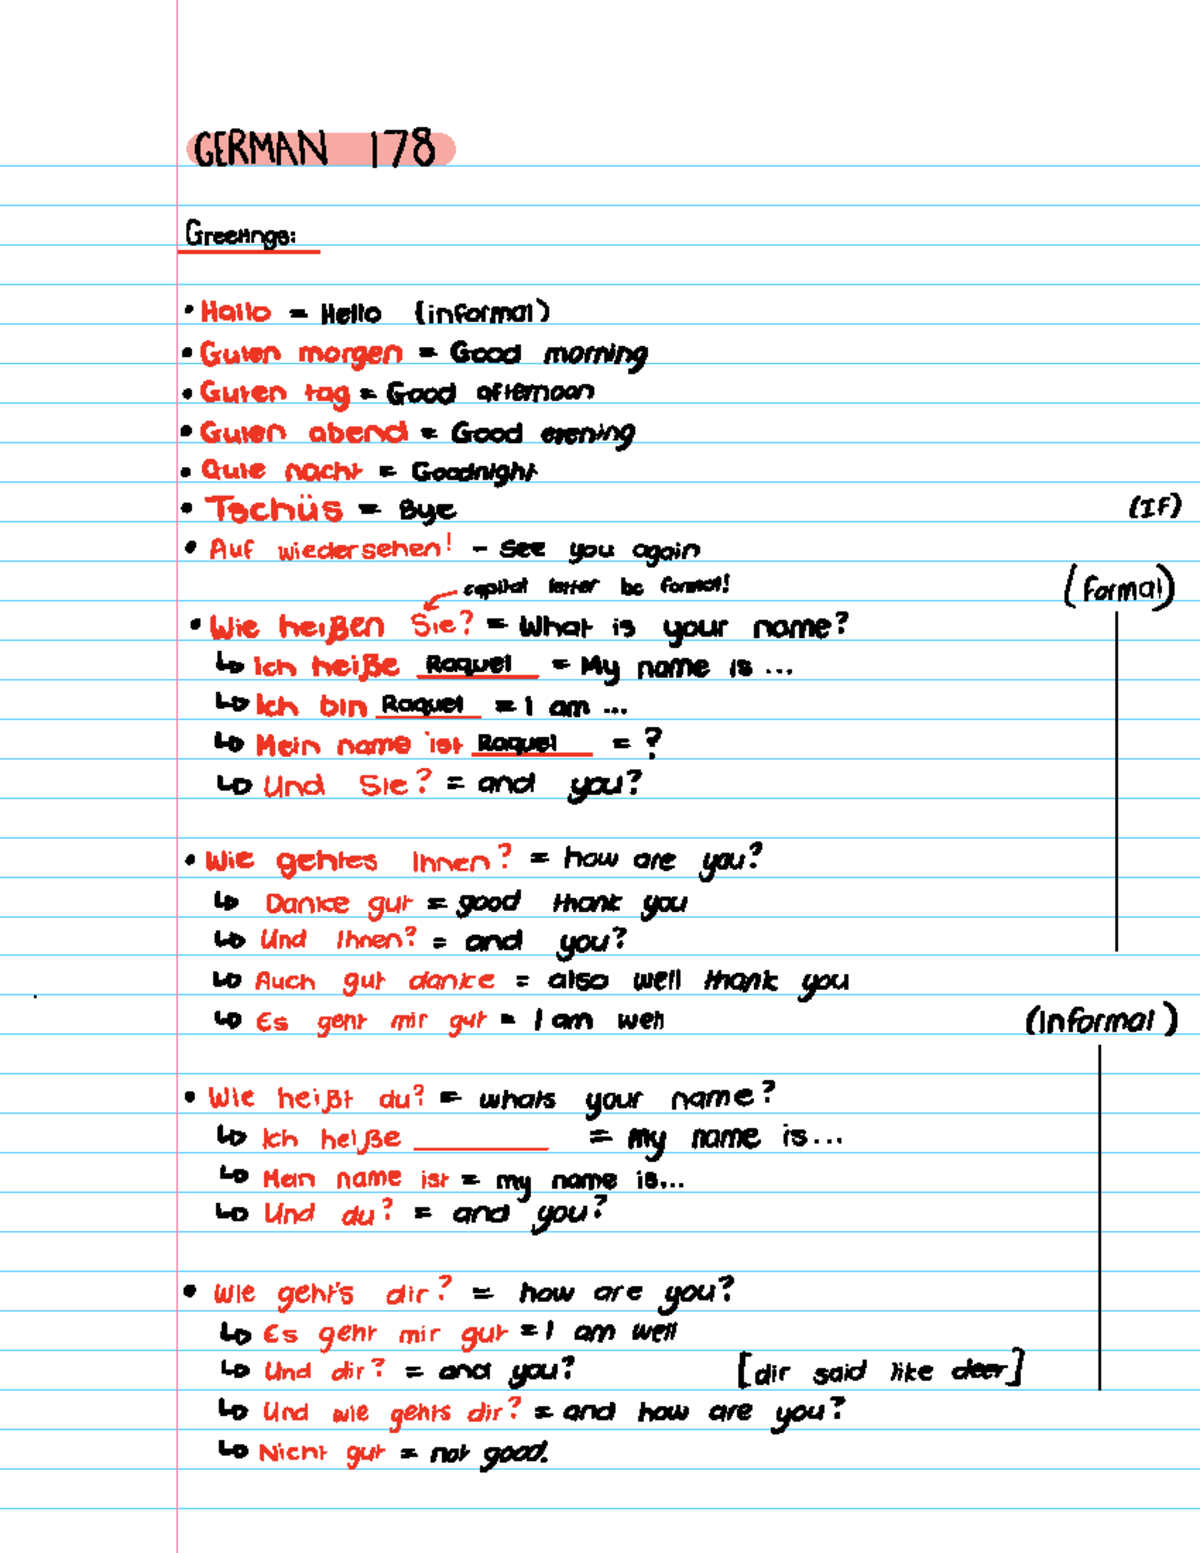 GERMAN 178
Greetings:
• Hallo = Hello (informal)
• Guten morgen = Good morning
• Guten tag = Good afternoon
• Guten abend = Good evening
• Gute nacht = Goodnight
• Tschüs = Bye (IF)
• Auf wiedersehen! - See you again
capital letter be formal! (formal)
• Wie heißen Sie? = What is your name?
↳ Ich heiße Raquel = My name is ...
↳ Ich bin Raquel = I am ...
↳ Mein name ist Raquel = ?
↳ Und Sie? = and you?
• Wie gehtes Ihnen? = how are you?
↳ Danke gut = good thank you
↳ Und Ihnen? = and you?
↳ Auch gut danke = also well thank you
↳ Es geht mir gut = I am well (Informal)
• Wie heißt du? = whats your name?
↳ Ich heiße ________ = my name is...
↳ Mein name ist = my name is...
↳ Und du? = and you?
• Wie geht's dir? = how are you?
↳ Es geht mir gut = I am well
↳ Und dir? = and you? [dir said like deer]
↳ Und wie gehts dir? = and how are you?
↳ Nicht gut = not good.